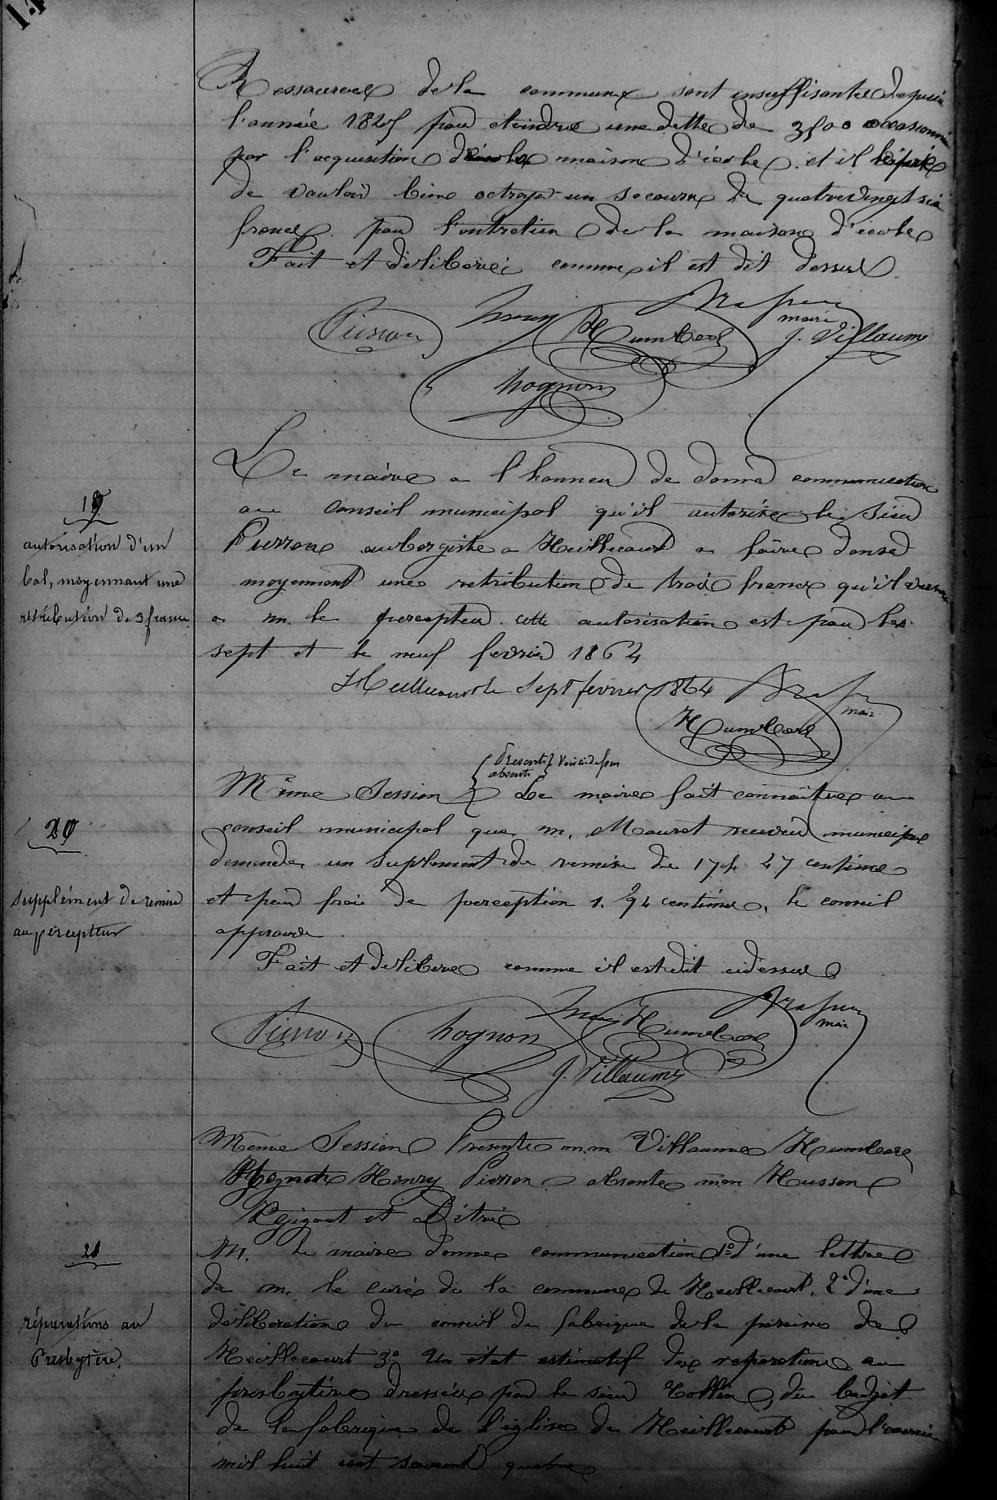 Ressources de la commune sont insuffisantes depuis
l'année 18 pour éteindre une dette de 3500 occasionné
par l'acquisition de la maison d'école et il
de vouloir bien octroyer un secours de quatrevingt six
francs pour l'entretien de la maison d'école
Fait et délibéré comme il est dit dessus
maire
Pierron Henry Humbert J. Villaume
hognon
19
autorisation d'un
bal, moyennant une
rétribution de 3 francs
Le maire a l'honneur de donner communication
au conseil municipal qu'il autorise le sieur
Pierron aubergiste a Heillecourt a faire danser
moyennant une retribution de trois francs qu'il versera
a m. le percepteur cette autorisation est pour les
sept et le neuf fevrier 1864
Heillecourt le sept fevrier 1864
maire
Humbert
Presents
absents
20
supplément de remise
au percepteur
Même Session Le maire fait connaitre au
conseil municipal que m. Mouret receveur municipal
demande un suplement de remise de 17 f 27 centimes
et pour frais de perception 1. 94 centimes, le conseil
approuve
Fait et delibere comme il est dit cidessus
maire
Pierron hognon Henry Humbert
J. Villaume
Meme Session Presents m.m Villaume Humbert
Hognon Henry Pierron absents mm Husson
et Détrie
21
réparations au
Presbytère.
M. le maire donne communication 1º d'une lettre
de m. le curé de la commune de Heillecourt, 2º d'une
délibération du conseil de fabrique de la paroisse de
Heillecourt 3º Un état estimatif des reparations au
presbytère dressée par le sieur Collin, du budget
de la fabrique de l'église de Heillecourt pour l'exercice
mil huit cent soixante quatre